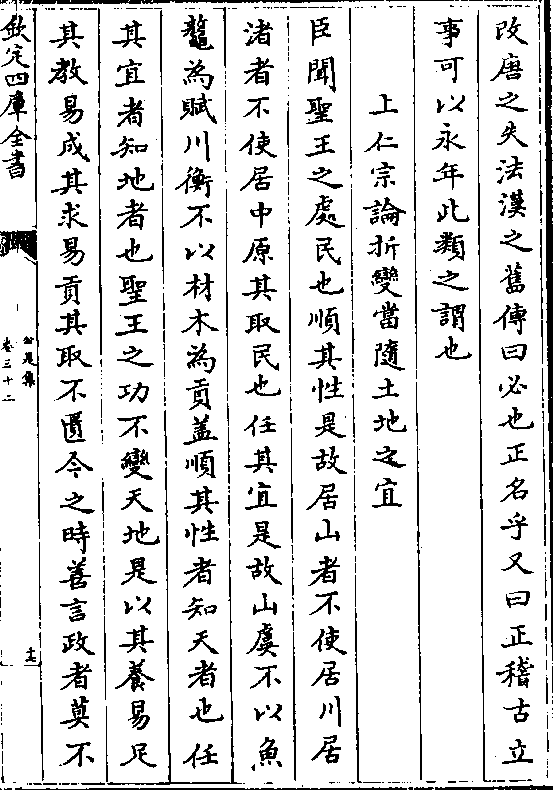 改唐之失法漢之舊傳曰必也正名乎又曰正稽古立
事可以永年此類之謂也
上仁宗論折變當隨土地之宜
臣聞聖王之處民也順其性是故居山者不使居川居
渚者不使居中原其取民也任其宜是故山虞不以魚
鼈為賦川衡不以材木為貢蓋順其性者知天者也任
其宜者知地者也聖王之功不變天地是以其養易足
其教易成其求易貢其取不匱今之時善言政者莫不
欽定四庫全書
公是集
卷三十二
十六